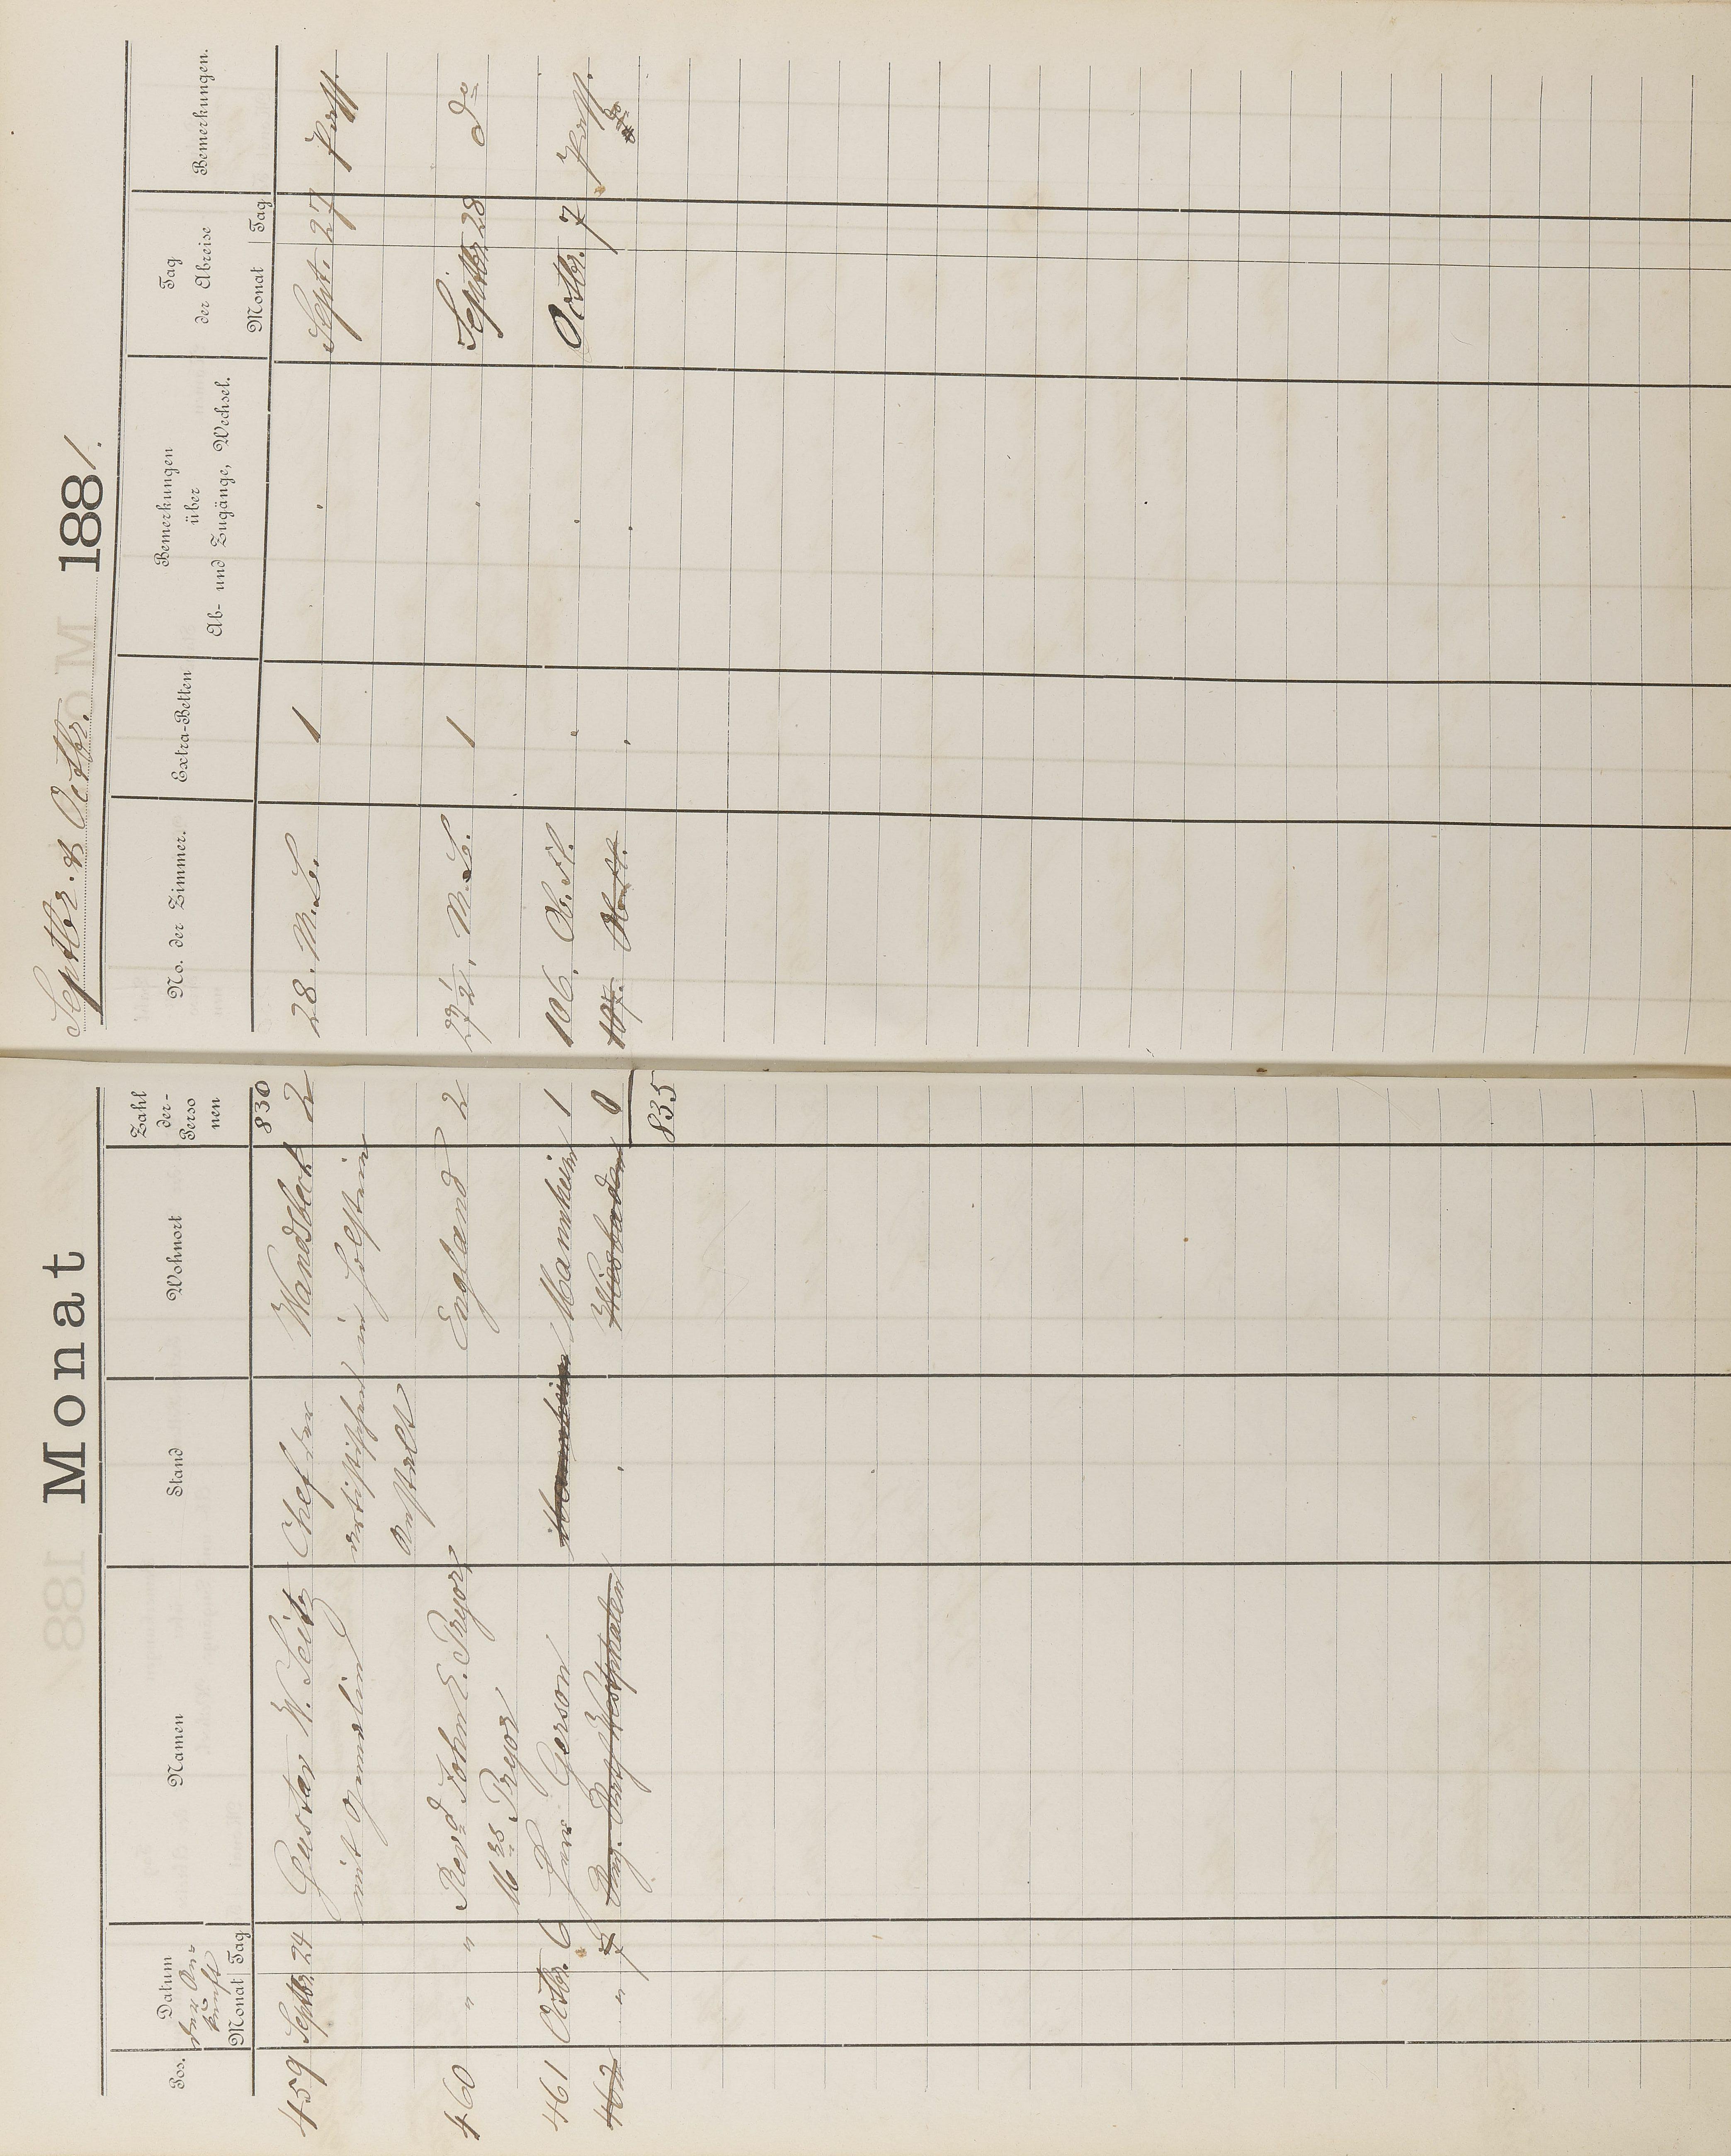 Monat Septbr. & Octbr. 1881.
Pos. Datum der Ankunft Monat Tag Namen Stand Wohnort Zahl der Personen No. der Zimmer. Extra-Betten Bemerkungen über Ab- und Zugänge, Wechsel. Tag der Abreise Monat Tag Bemerkungen.
830
459 Septbr. 24 Gustav W. Seitz Chef der Wandsbeck 2 28. M. L. 1 Sept. 27
mit Gemalin artistischen in Holstein
Anstalt
460 " " Revd. John E. Pryor England 2 27 1/2. M. L. 1 Septbr. 28 do
Mrs. Pryor
461 Octbr. 6 Gerson Mannheim Mannheim 1 106. Ob. St. Octbr. 7
462 " 7 Westphalen Wiesbaden 0 107. Ob. St. do
835